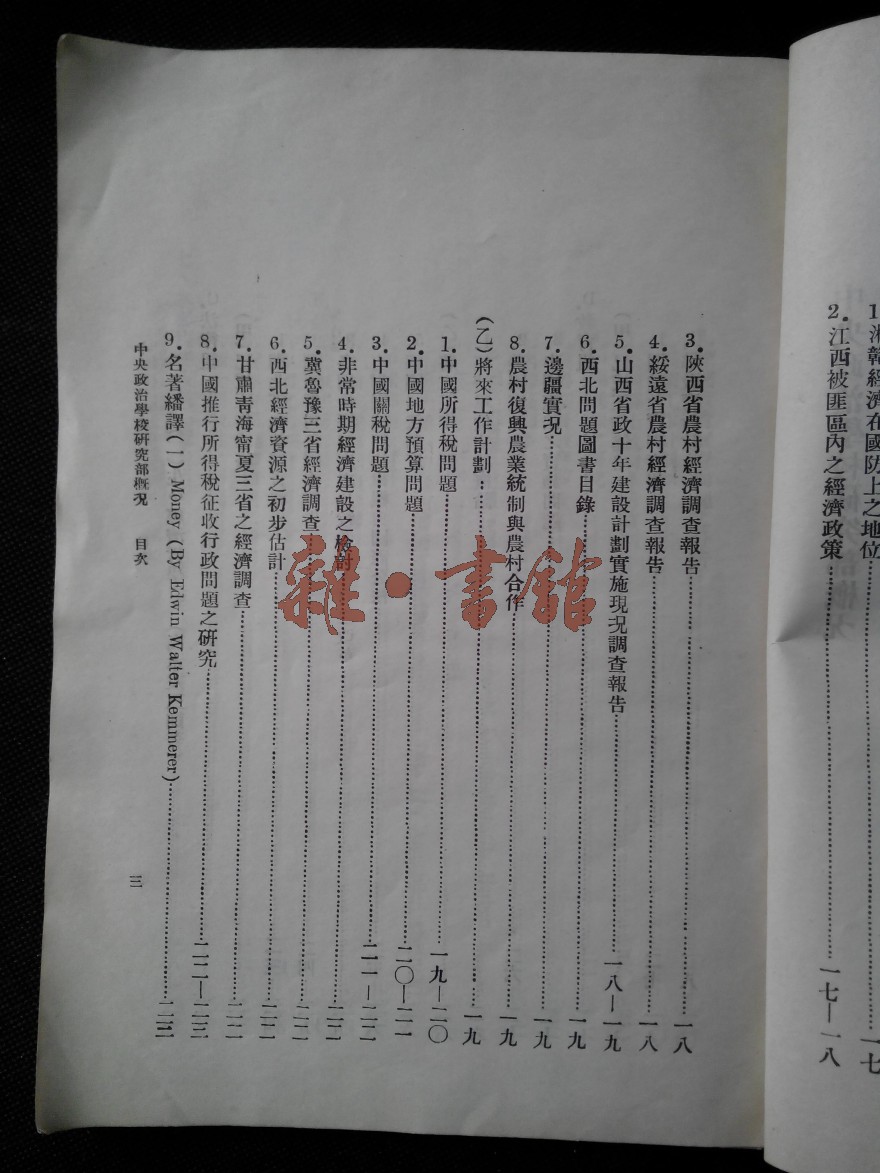 1 湘贛經濟在國防上之地位……一七
2．江西被匪區內之經濟政策……一七—一八
3．陝西省農村經濟調查報告……一八
4．綏遠省農村經濟調查報告……一八
5．山西省政十年建設計劃實施現況調查報告……一八—一九
6．西北問題圖書目錄……一九
7．邊疆實況……一九
8．農村復興農業統制與農村合作……一九
(乙)將來工作計劃：……一九
1．中國所得稅問題……一九—二〇
2．中國地方預算問題……二〇—二一
3．中國關稅問題……二一—二二
4．非常時期經濟建設之檢討……二二
5．冀魯豫三省經濟調查……二二
6．西北經濟資源之初步估計……二二
7．甘肅靑海甯夏三省之經濟調查……二二
8．中國推行所得稅征收行政問題之研究……二二—二三
9．名著繙譯(一) Money (By Edwin Walter Kemmerer)……二三
中央政治學校研究部概況 目次 三
雜·書館